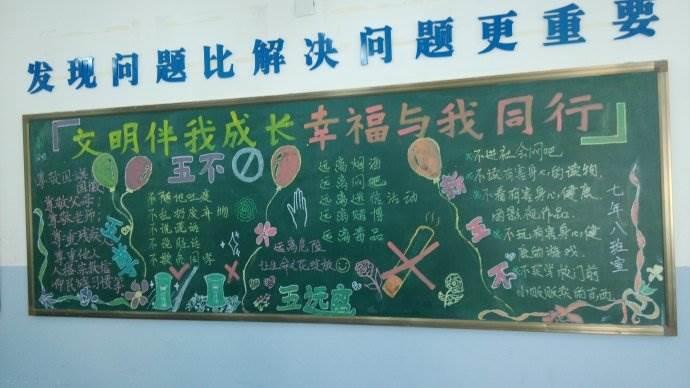 发现问题比解决问题更重要
文明伴我成长 幸福与我同行
五不
尊敬国旗
国徽
尊敬父母;
尊敬老师;
尊重他人
五尊
不随地吐痰
不乱扔废弃物
不说谎话
不说脏话
不欺负同学
远离烟酒
远离网吧
远离迷信活动
远离赌博
远离毒品
远离危险
让生命之花绽放
五远离
新五不
不进社会网吧
不读有害身心的读物
不看有害身心健康
的影视作品
不玩有害身心健
康的游戏
不买学校门前
小贩贩卖的东西
七年八班宣